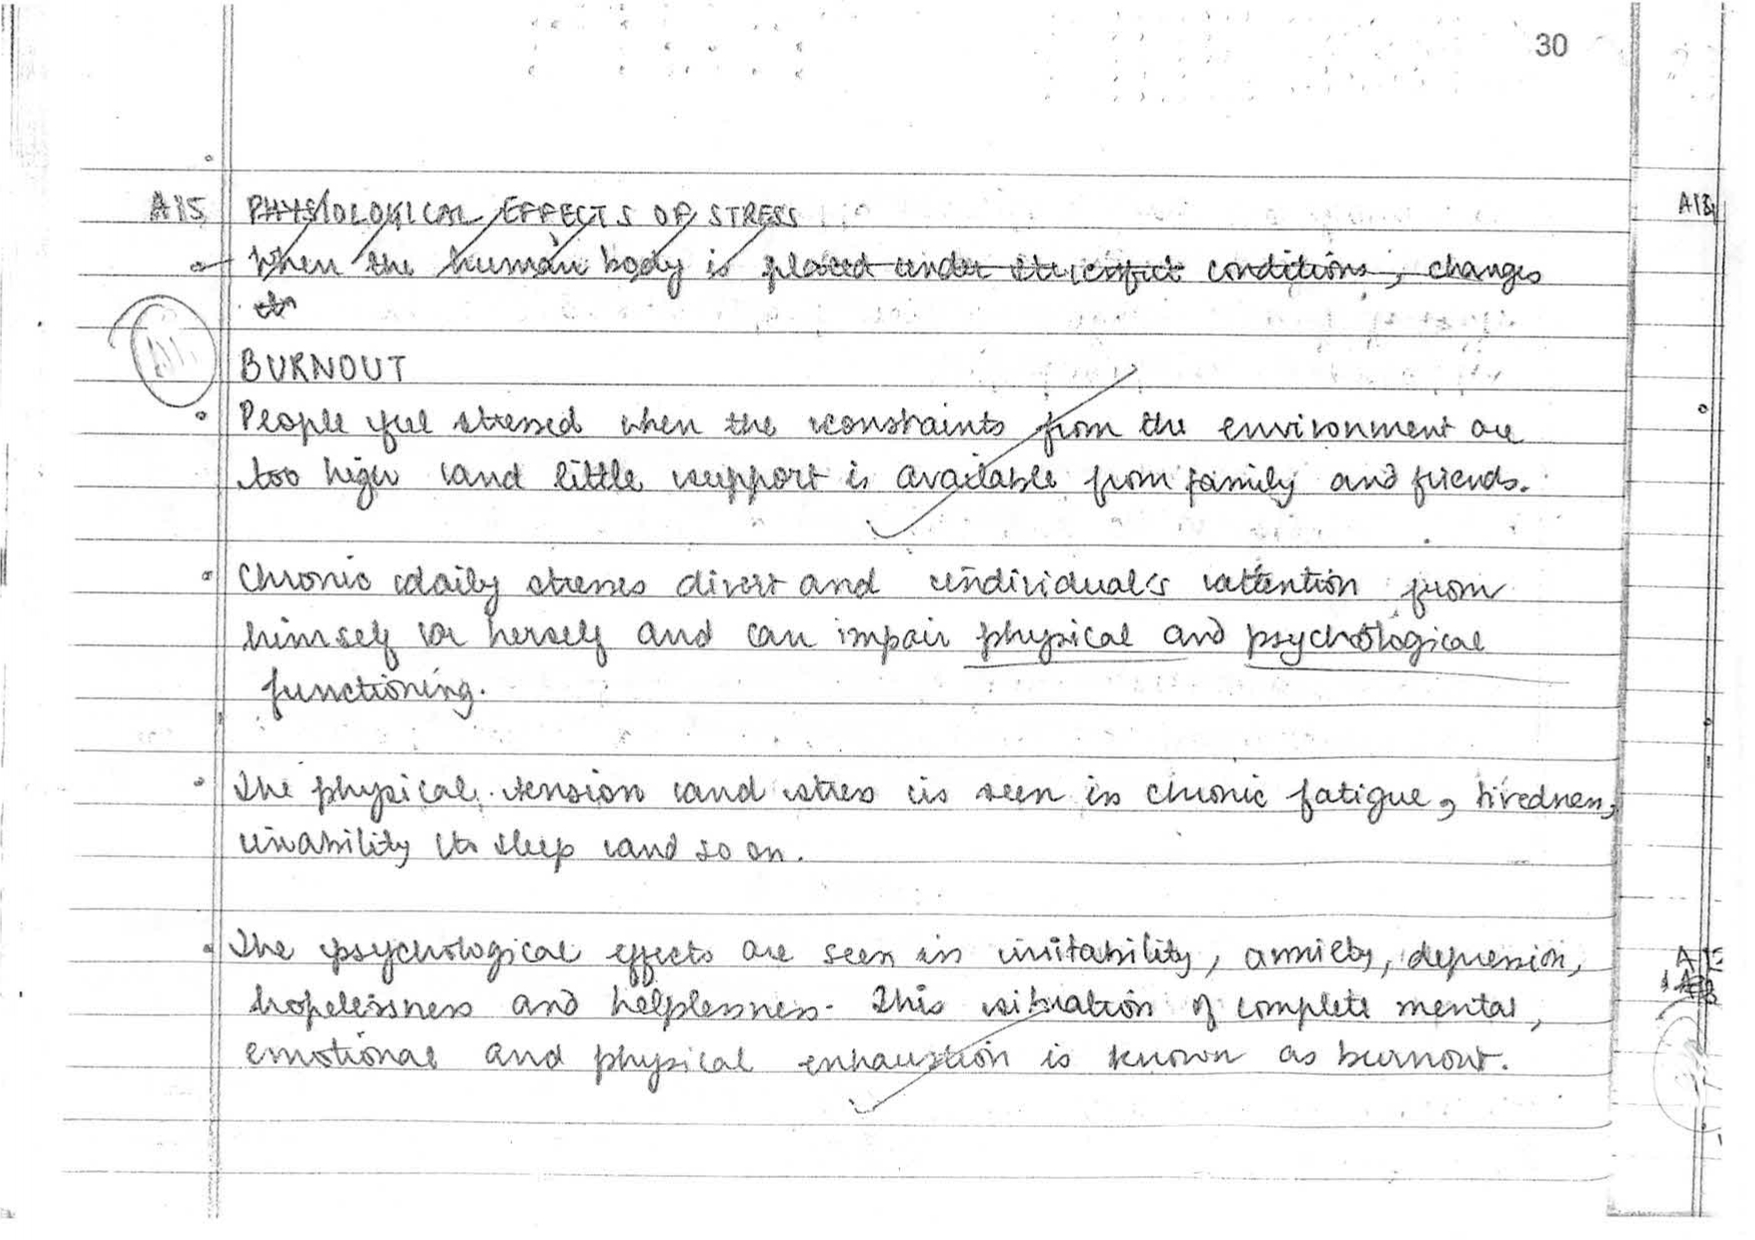 30
A15 PHYSIOLOGICAL EFFECTS OF STRESS
When the human body is placed under conditions, changes
to
BURNOUT
• People feel stressed when the constraints from the environment are
too high and little support is available from family and friends.
• Chronic daily stresses divert and individual's attention from
himself or herself and can impair physical and psychological
functioning.
• The physical tension and stress is seen in chronic fatigue, tiredness,
inability to sleep and so on.
• The psychological effects are seen in irritability, anxiety, depression,
hopelessness and helplessness. This situation of complete mental,
emotional and physical exhaustion is known as burnout.